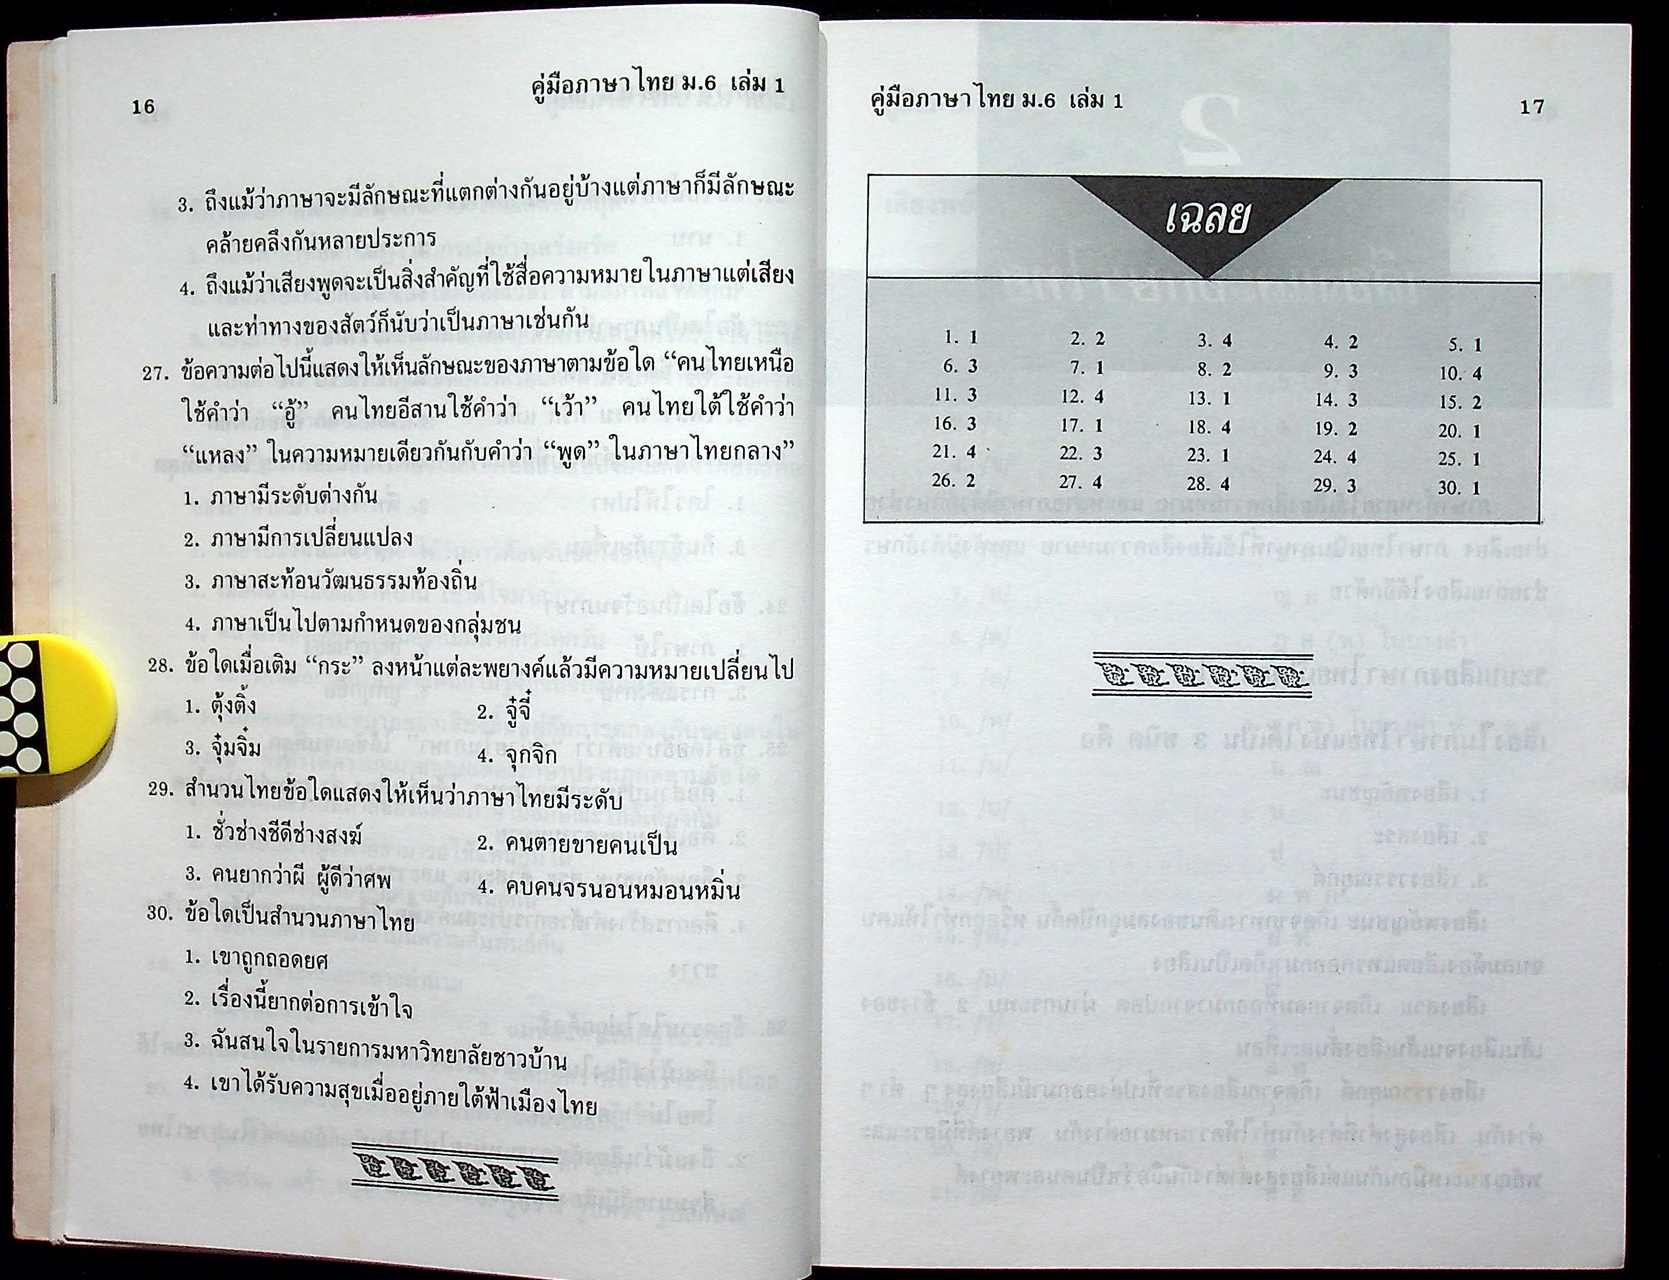 16
คู่มือภาษาไทย ม.6 เล่ม 1
3. ถึงแม้ว่าภาษาจะมีลักษณะที่แตกต่างกันอยู่บ้างแต่ภาษาก็มีลักษณะ
คล้ายคลึงกันหลายประการ
4. ถึงแม้ว่าเสียงพูดจะเป็นสิ่งสำคัญที่ใช้สื่อความหมายในภาษาแต่เสียง
และท่าทางของสัตว์ก็นับว่าเป็นภาษาเช่นกัน
27. ข้อความต่อไปนี้แสดงให้เห็นลักษณะของภาษาตามข้อใด “คนไทยเหนือ
ใช้คำว่า “อู้” คนไทยอีสานใช้คำว่า “เว้า” คนไทยใต้ใช้คำว่า
“แหลง” ในความหมายเดียวกันกับคำว่า “พูด” ในภาษาไทยกลาง”
1. ภาษามีระดับต่างกัน
2. ภาษามีการเปลี่ยนแปลง
3. ภาษาสะท้อนวัฒนธรรมท้องถิ่น
4. ภาษาเป็นไปตามกำหนดของกลุ่มชน
28. ข้อใดเมื่อเติม “กระ” ลงหน้าแต่ละพยางค์แล้วมีความหมายเปลี่ยนไป
1. ตุ้งติ้ง 2. จู๋จี๋
3. จุ๋มจิ๋ม 4. จุกจิก
29. สำนวนไทยข้อใดแสดงให้เห็นว่าภาษาไทยมีระดับ
1. ชั่วช่างชีดีช่างสงฆ์ 2. คนตายขายคนเป็น
3. คนยากว่าผี ผู้ดีว่าศพ 4. คบคนจรนอนหมอนหมิ่น
30. ข้อใดเป็นสำนวนภาษาไทย
1. เขาถูกถอดยศ
2. เรื่องนี้ยากต่อการเข้าใจ
3. ฉันสนใจในรายการมหาวิทยาลัยชาวบ้าน
4. เขาได้รับความสุขเมื่ออยู่ภายใต้ฟ้าเมืองไทย
คู่มือภาษาไทย ม.6 เล่ม 1
17
เฉลย
1. 1 2. 2 3. 4 4. 2 5. 1
6. 3 7. 1 8. 2 9. 3 10. 4
11. 3 12. 4 13. 1 14. 3 15. 2
16. 3 17. 1 18. 4 19. 2 20. 1
21. 4 22. 3 23. 1 24. 4 25. 1
26. 2 27. 4 28. 4 29. 3 30. 1